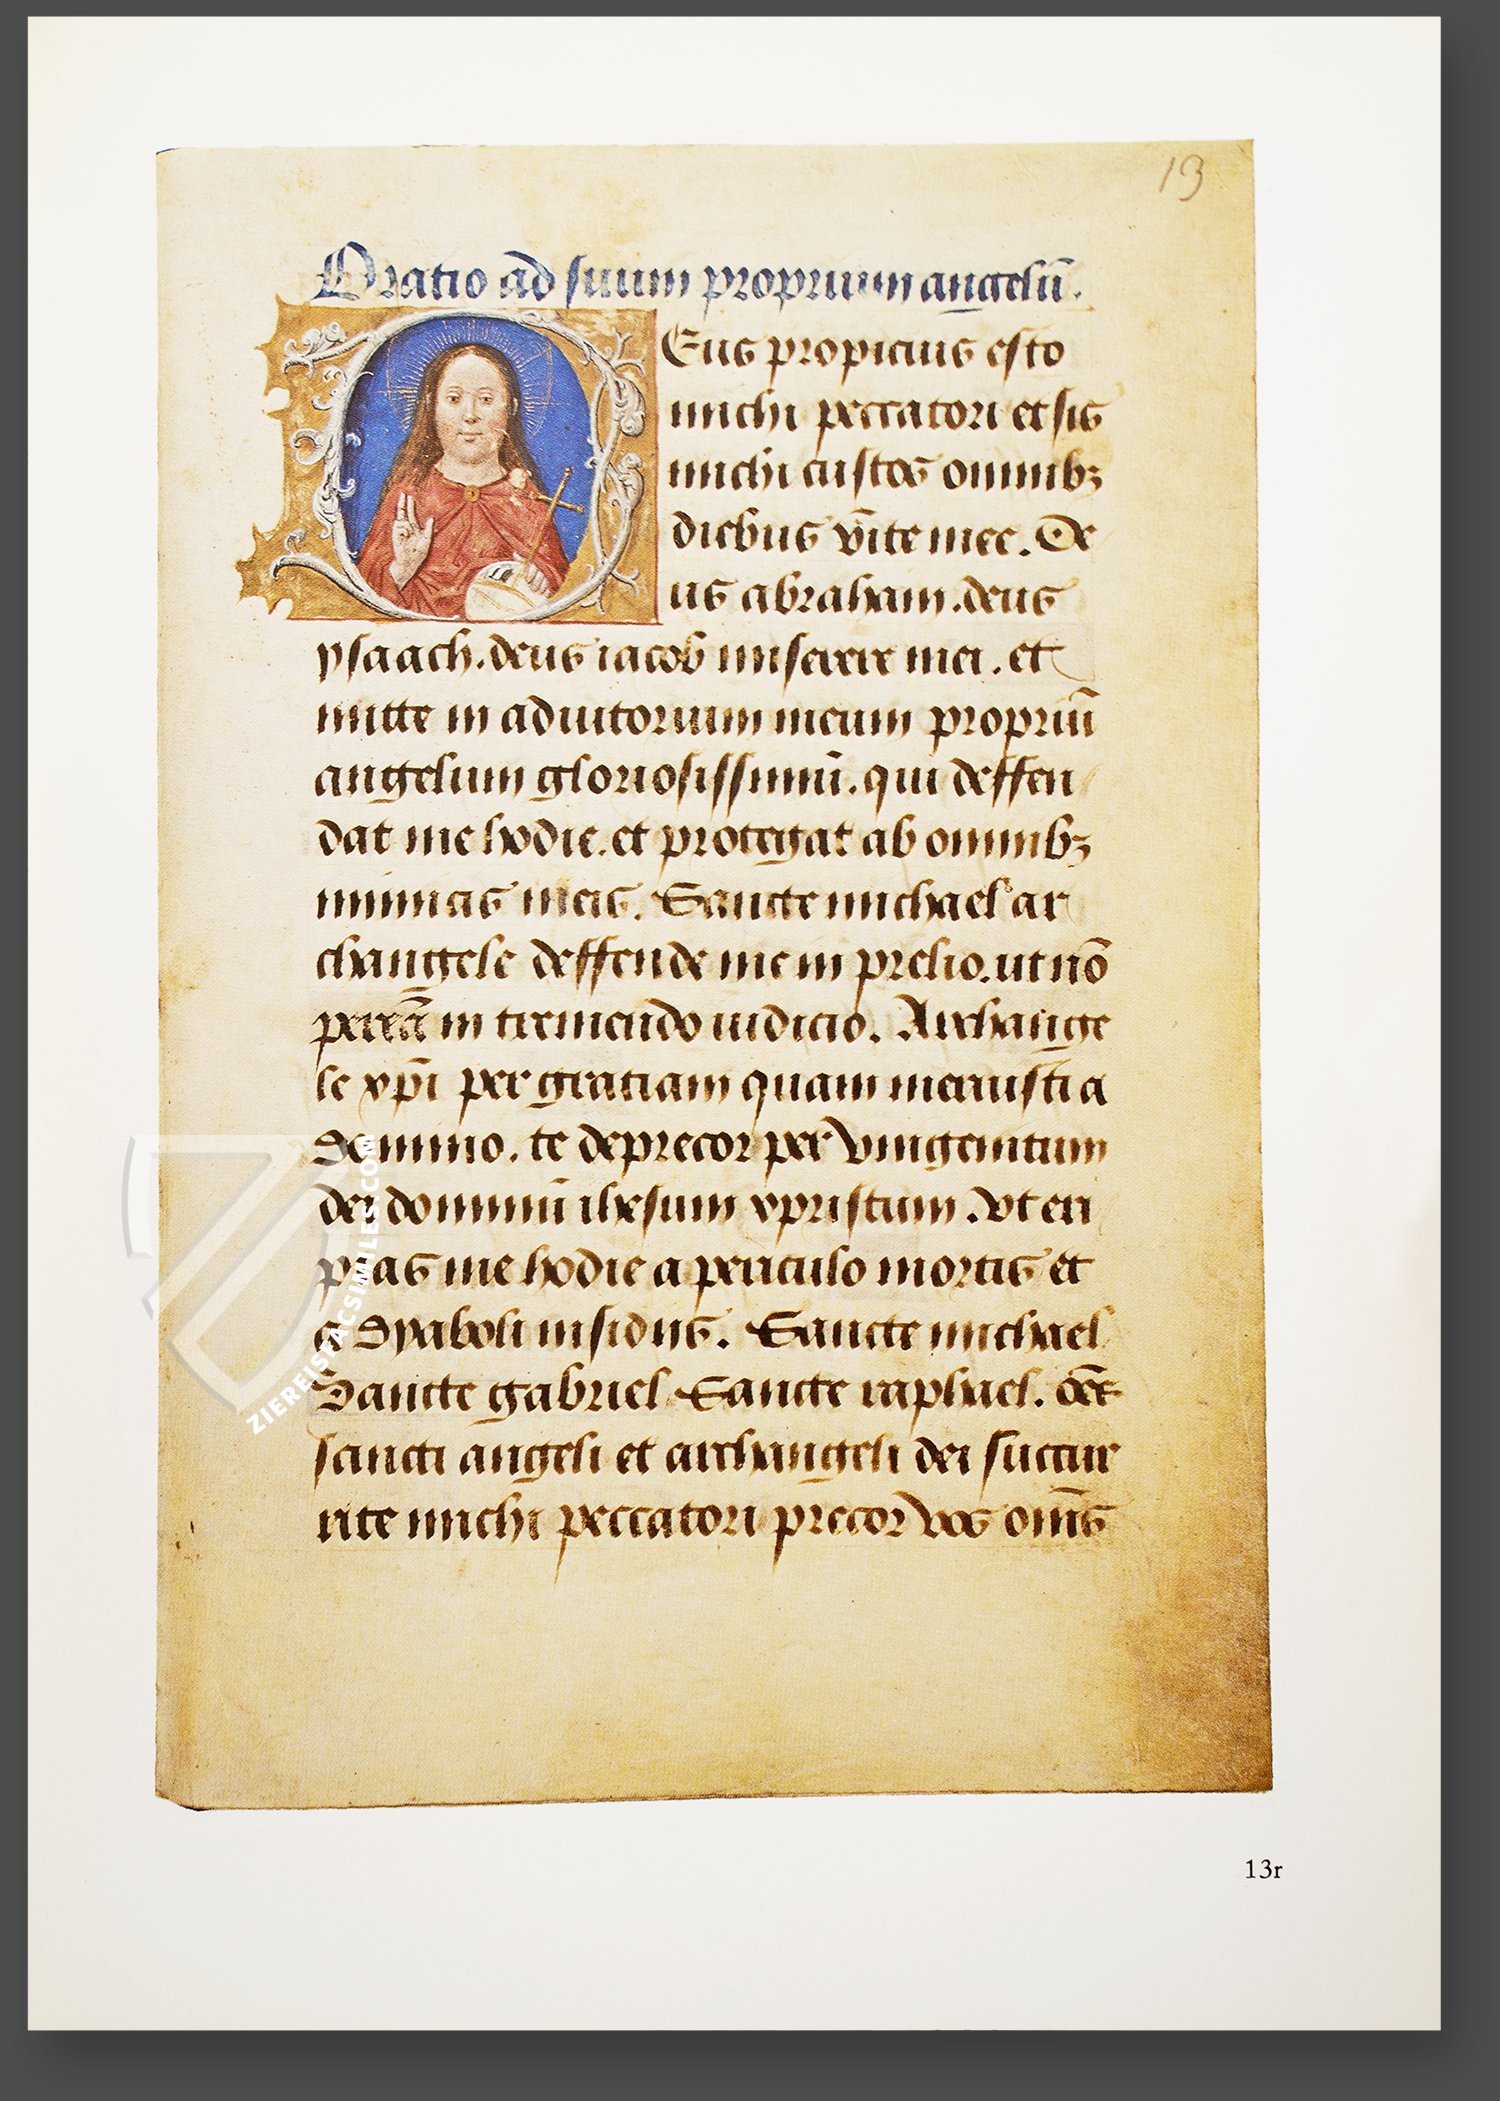 13
Oratio ad suum proprium angelū.
Eus propicius esto
michi peccatori et sis
michi custos omnibꝫ
diebus vite mee. De
us abraham. deus
ysaach. deus iacob miserere mei. et
mitte in adiutorium meum propriū
angelum gloriosissimū. qui deffen
dat me hodie. et protegat ab omnibꝫ
inimicis meis. Sancte michael ar
changele deffende me in prelio. ut nō
pereā in tremendo iudicio. Archange
le xp̄i per gratiam quam meruisti a
Domino. te deprecor per Vnigenitum
dei dominū ihesum xpristum. Vt eri
pias me hodie a periculo mortis et
a Dyaboli insidiis. Sancte michael
Sancte gabriel Sancte raphael. oēs
sancti angeli et archangeli dei succur
rite michi peccatori precor vos om̄s
ZIEREISFACSIMILES.COM
13r